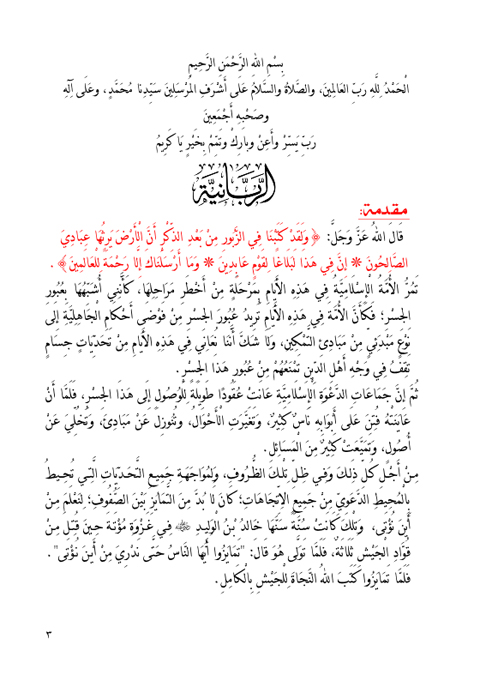 بِسْمِ اللهِ الرَّحْمَنِ الرَّحِيمِ
الْحَمْدُ لِلَّهِ رَبِّ العَالَمِينَ، والصَّلاةُ والسَّلامُ عَلَى أَشْرَفِ المُرْسَلِينَ سَيِّدِنَا مُحَمَّدٍ، وعَلَى آلِهِ
وصَحْبِهِ أَجْمَعِينَ
رَبِّ يَسِّرْ وأَعِنْ وبارِكْ وتَمِّمْ بِخَيْرٍ يَا كَرِيمُ
الرَّبَّانِيَّة
مقدمة:
قَالَ اللهُ عَزَّ وَجَلَّ: ﴿وَلَقَدْ كَتَبْنَا فِي الزَّبُورِ مِنْ بَعْدِ الذِّكْرِ أَنَّ الْأَرْضَ يَرِثُهَا عِبَادِيَ
الصَّالِحُونَ * إِنَّ فِي هَذَا لَبَلَاغًا لِقَوْمٍ عَابِدِينَ * وَمَا أَرْسَلْنَاكَ إِلَّا رَحْمَةً لِلْعَالَمِينَ﴾ .
تَمُرُّ الأُمَّةُ الْإِسْلَامِيَّةُ فِي هَذِهِ الْأَيَّامِ بِمَرْحَلَةٍ مِنْ أَخْطَرِ مَرَاحِلِهَا، كَأَنَّنِي أُشَبِّهُهَا بِعُبُورِ
الجِسْرِ؛ فَكَأَنَّ الأُمَّةَ فِي هَذِهِ الْأَيَّامِ تُرِيدُ عُبُورَ الجِسْرِ مِنْ فَوْضَى أَحْكَامِ الجَاهِلِيَّةِ إِلَى
نَوْعٍ مَبْدَئِيٍّ مِنْ مَبَادِئِ التَّمْكِينِ، وَلَا شَكَّ أَنَّنَا نُعَانِي فِي هَذِهِ الْأَيَّامِ مِنْ تَحَدِّيَاتٍ جِسَامٍ
تَقِفُ فِي وَجْهِ أَهْلِ الدِّينِ تَمْنَعُهُمْ مِنْ عُبُورِ هَذَا الجِسْرِ .
ثُمَّ إِنَّ جَمَاعَاتِ الدَّعْوَةِ الْإِسْلَامِيَّةِ عَانَتْ عُقُودًا طَوِيلَةً لِلْوُصُولِ إِلَى هَذَا الجِسْرِ، فَلَمَّا أَنْ
عَايَنَتْهُ فُتِنَ عَلَى أَبْوَابِهِ نَاسٌ كَثِيرٌ، وَتَغَيَّرَتِ الْأَحْوَالُ، وَتُنُوزِلَ عَنْ مَبَادِئَ، وَتُخُلِّيَ عَنْ
أُصُولٍ، وَتَمَيَّعَتْ كَثِيرٌ مِنَ المَسَائِلِ.
مِنْ أَجْلِ كُلِّ ذَلِكَ وَفِي ظِلِّ تِلْكَ الظُّرُوفِ، ولِمُوَاجَهَةِ جَمِيعِ التَّحَدِّيَاتِ الَّتِي تُحِيطُ
بِالمُحِيطِ الدَّعَوِيِّ مِنْ جَمِيعِ الِاتِّجَاهَاتِ؛ كَانَ لَا بُدَّ مِنَ التَّمَايُزِ بَيْنَ الصُّفُوفِ؛ لِنَعْلَمَ مِنْ
أَيْنَ نُؤْتَى، وَتِلْكَ كَانَتْ سُنَّةً سَنَّهَا خَالِدُ بْنُ الْوَلِيدِ ﷺ فِي غَزْوَةِ مُؤْتَةَ حِينَ قُتِلَ مِنْ
قُوَّادِ الْجَيْشِ ثَلَاثَةٌ، فَلَمَّا تَوَلَّى هُوَ قَالَ: "تَمَايَزُوا أَيُّهَا النَّاسُ حَتَّى نَدْرِيَ مِنْ أَيْنَ نُؤْتَى" .
فَلَمَّا تَمَايَزُوا كَتَبَ اللهُ النَّجَاةَ لِلْجَيْشِ بِالْكَامِلِ .
٣